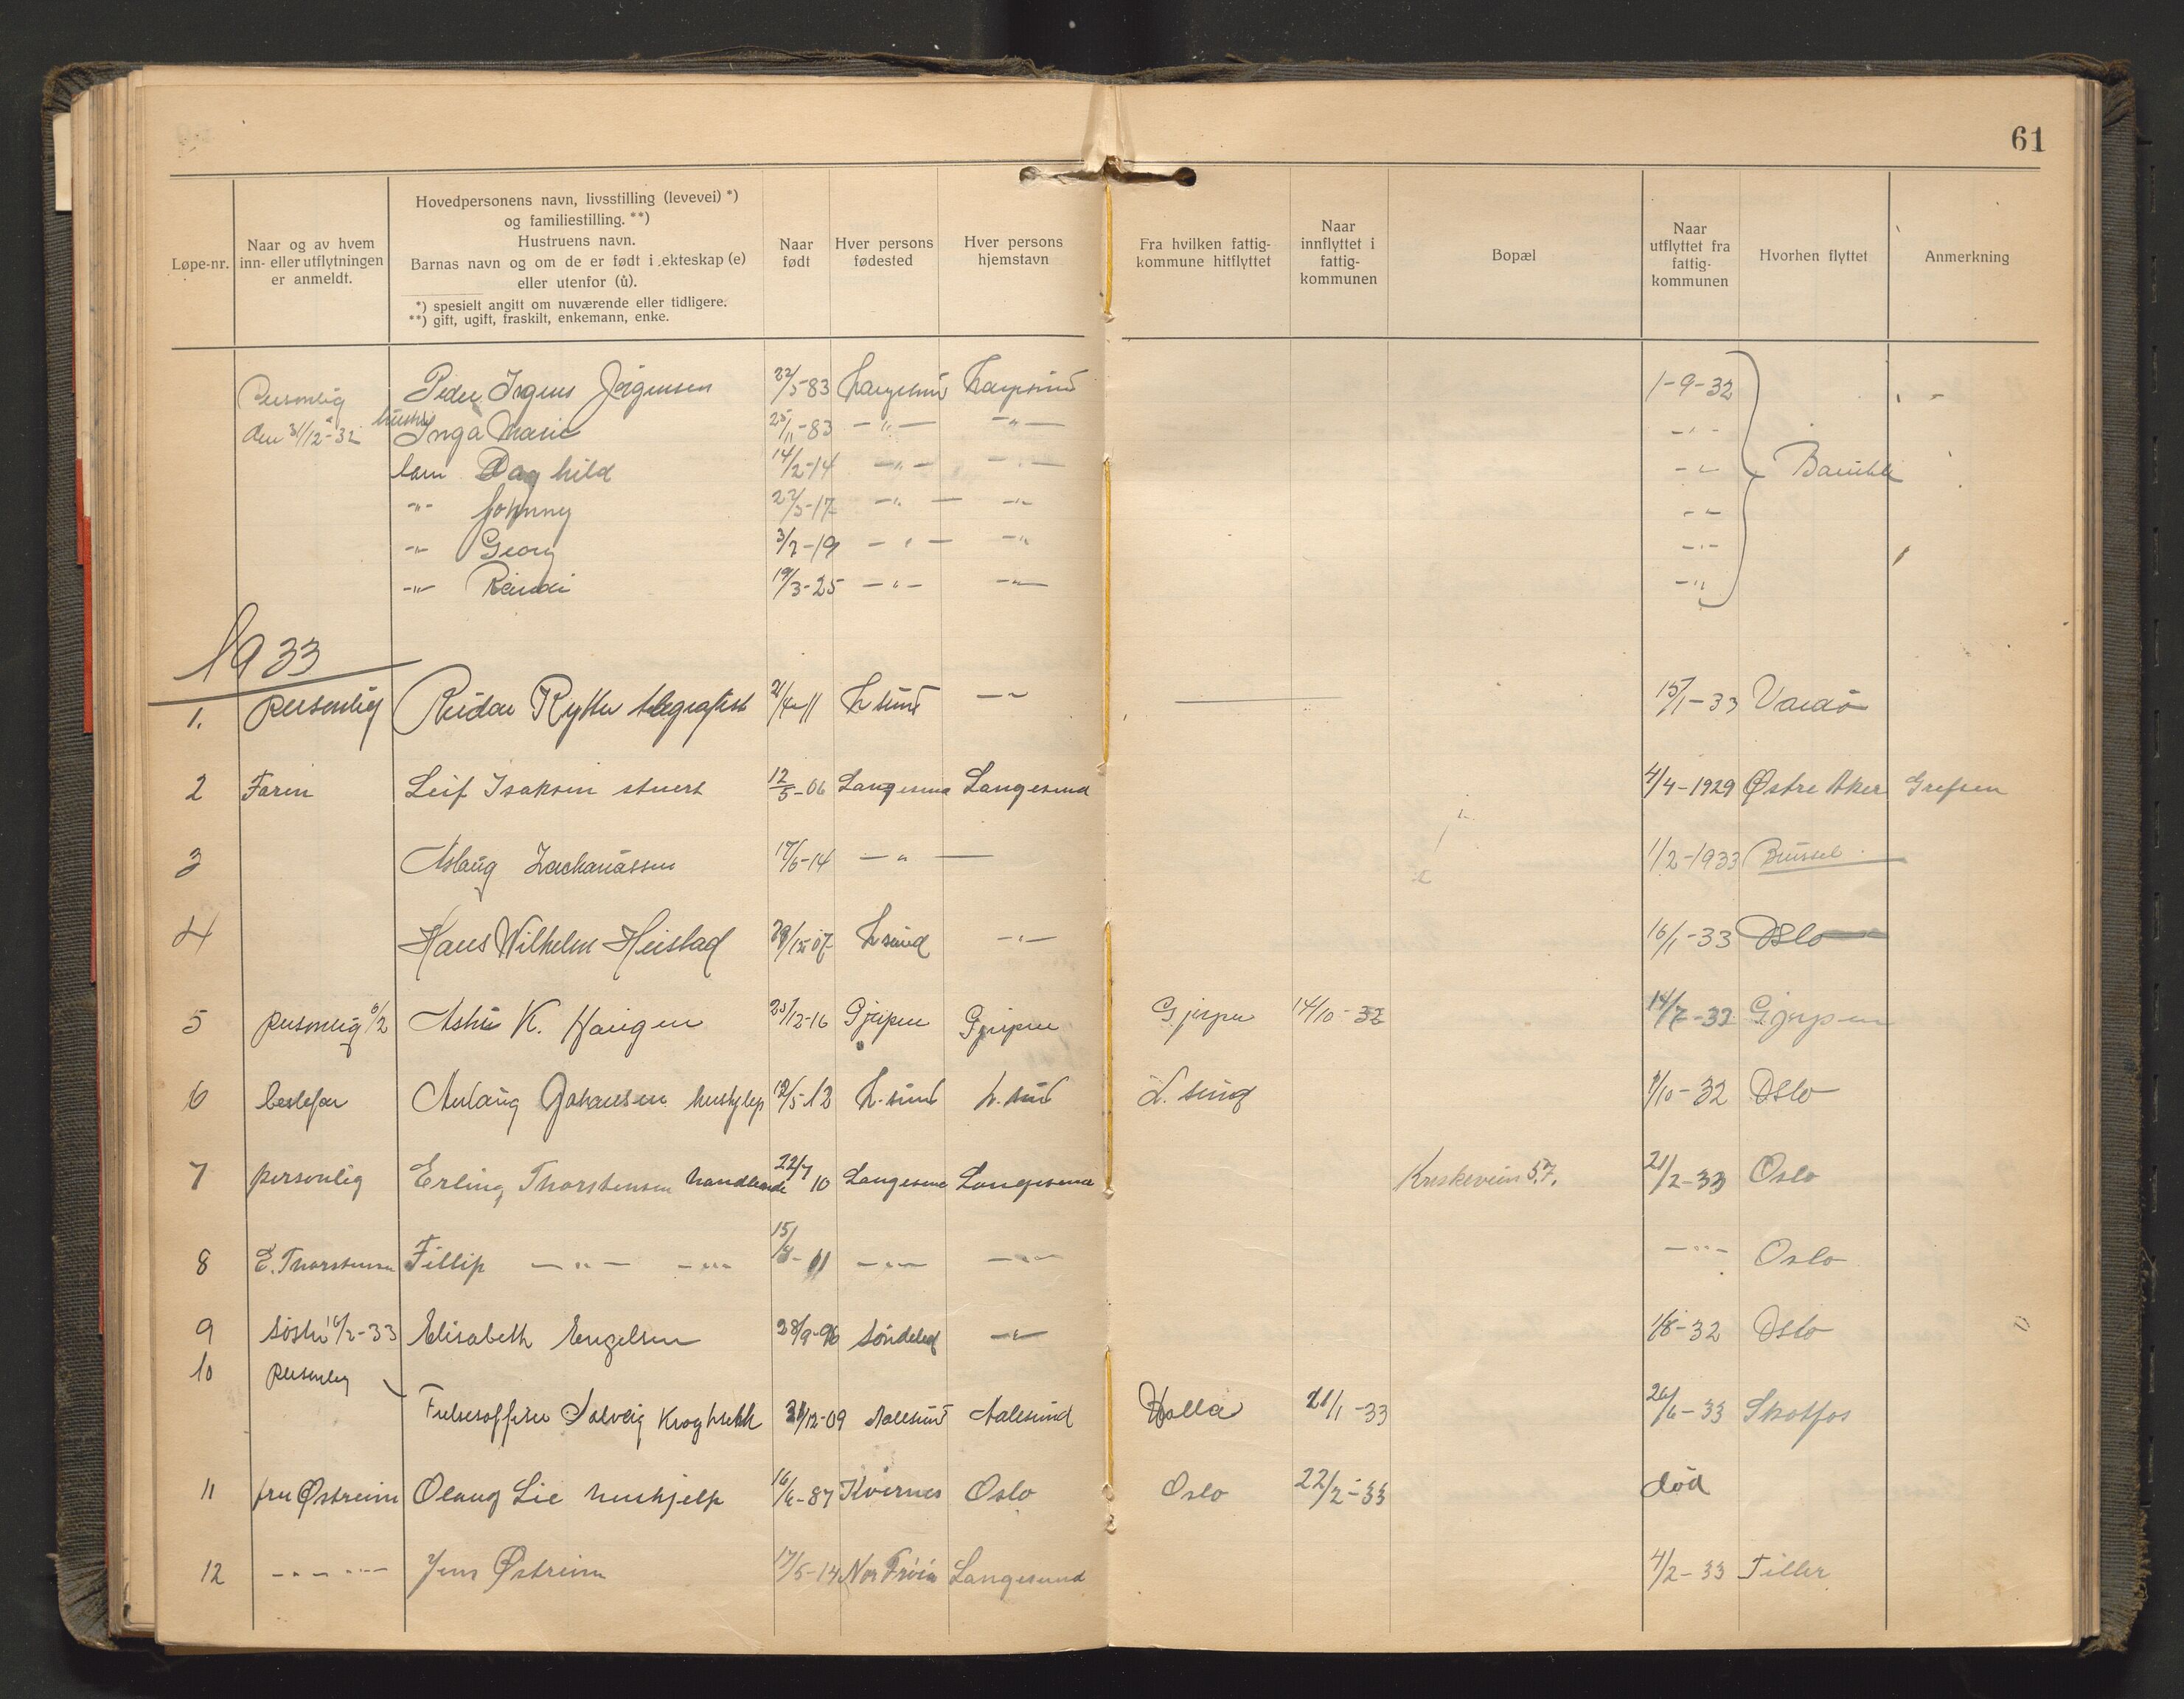 61
Løpe-nr.
Naar og av hvem inn- eller utflytningen er anmeldt.
Hovedpersonens navn, livsstilling (levevei) *)
og familiestilling. **)
Hustruens navn.
Barnas navn og om de er født i ekteskap (e)
eller utenfor (û).
*) spesielt angitt om nuværende eller tidligere.
**) gift, ugift, fraskilt, enkemann, enke.
Naar født
Hver persons fødested
Hver persons hjemstavn
Fra hvilken fattig-kommune hitflyttet
Naar innflyttet i fattig-kommunen
Bopæl
Naar utflyttet fra fattig-kommunen
Hvorhen flyttet
Anmerkning
Personlig Peder Jørgensen 22/5-83 Langesund Langesund 1-9-32
den 31/12-32 hustru Inga Marie 25/11-83 -"- -"- -"-
barn Daghild 14/2-14 -"- -"- -"- Bamble
-"- Johnny 22/5-17 -"- -"- -"-
-"- Georg 3/7-19 -"- -"- -"-
-"- Randi 19/3-25 -"- -"- -"-
1933
1. Personlig Reidar Rytter telegrafist 21/4-11 L sund -"- 15/1-33 Vardø
2 Faren Leif Isaksen stuert 12/5-06 Langesund Langesund 4/4-1929 Østre Aker Grefsen
3 Aslaug Zachariassen 17/6-14 -"- 1/2-1933 Brüssel
4 Hans Wilhelm Heistad 29/12-07 L sund -"- 16/1-33 Oslo
5 Personlig 6/2 K. Haugen 25/12-16 Gjerpen Gjerpen Gjerpen 14/10-32 14/7-32 Gjerpen
6 bestefar Johansen hushjelp 19/5-12 L. sund L. sund L. sund 1/10-32 Oslo
7 personlig Erling Thorstensen handlende 22/7 10 Langesund Langesund 57. 21/2-33 Oslo
8 E. Thorstensen Fillip -"- -"- 15/8-11 -"- -"- -"- Oslo
9 Søster 16/2-33 Elisabeth Engelsen 28/9-96 Søndeled -"- 1/8-32 Oslo
10 Personlig
Frelsesoffiser Solveig 31/12-09 Aalesund Aalesund Holla 21/1-33 26/6-33 Skotfos
11 fru Østreim Olaug Lie hushjelp 16/6-87 Kvernes Oslo Oslo 22/2-33 død
12 -"- -"- Jens Østreim 17/5-14 Nor Frøia Langesund 4/2-33 Tiller